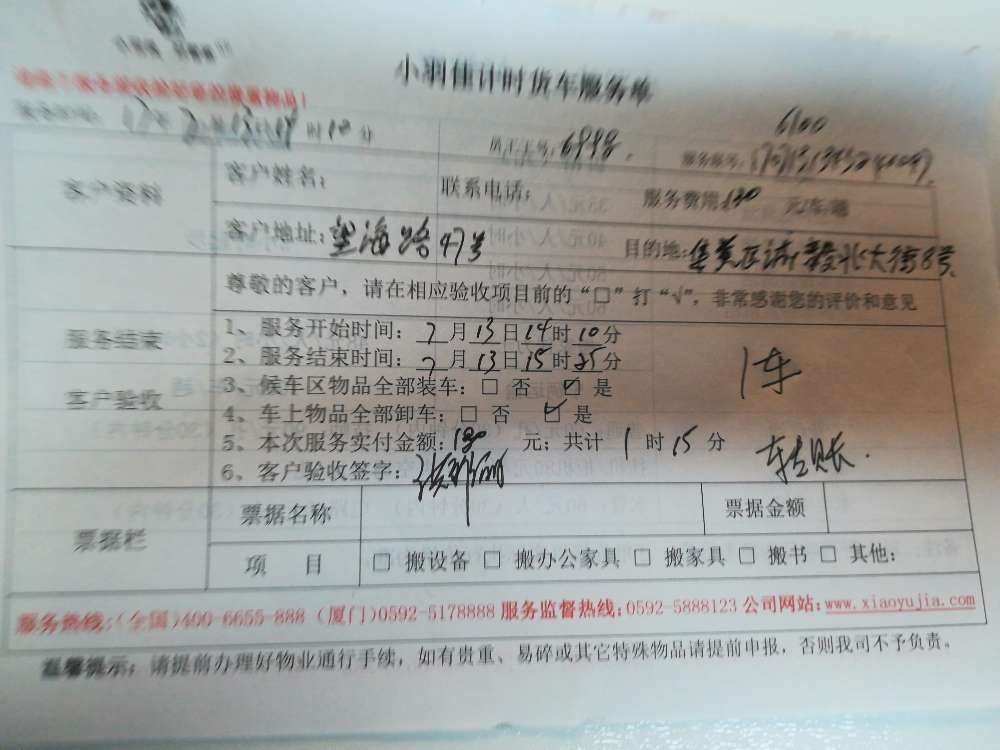 小羽佳计时货车服务单
17年7月13日14时10分 员工工号:6998. 6100
客户资料 客户姓名: 联系电话: 服务费用:130 元/车/趟
客户地址:望海路47号 目的地:集美区浒井 北大街8号
尊敬的客户，请在相应验收项目前的“口”打“√”，非常感谢您的评价和意见
服务结束
客户验收
1、服务开始时间：7月13日14时10分
2、服务结束时间：7月13日15时25分
3、候车区物品全部装车：□ 否 ☑ 是
4、车上物品全部卸车：□ 否 ☑ 是
5、本次服务实付金额：130 元；共计 1 时 15 分
6、客户验收签字：
1车
转账.
票据栏 票据名称 票据金额
项 目 □ 搬设备 □ 搬办公家具 □ 搬家具 □ 搬书 □ 其他：
服务热线：(全国)400-6655-888 (厦门)0592-5178888 服务监督热线：0592-5888123 公司网站：www.xiaoyujia.com
温馨提示：请提前办理好物业通行手续，如有贵重、易碎或其它特殊物品请提前申报，否则我司不予负责。